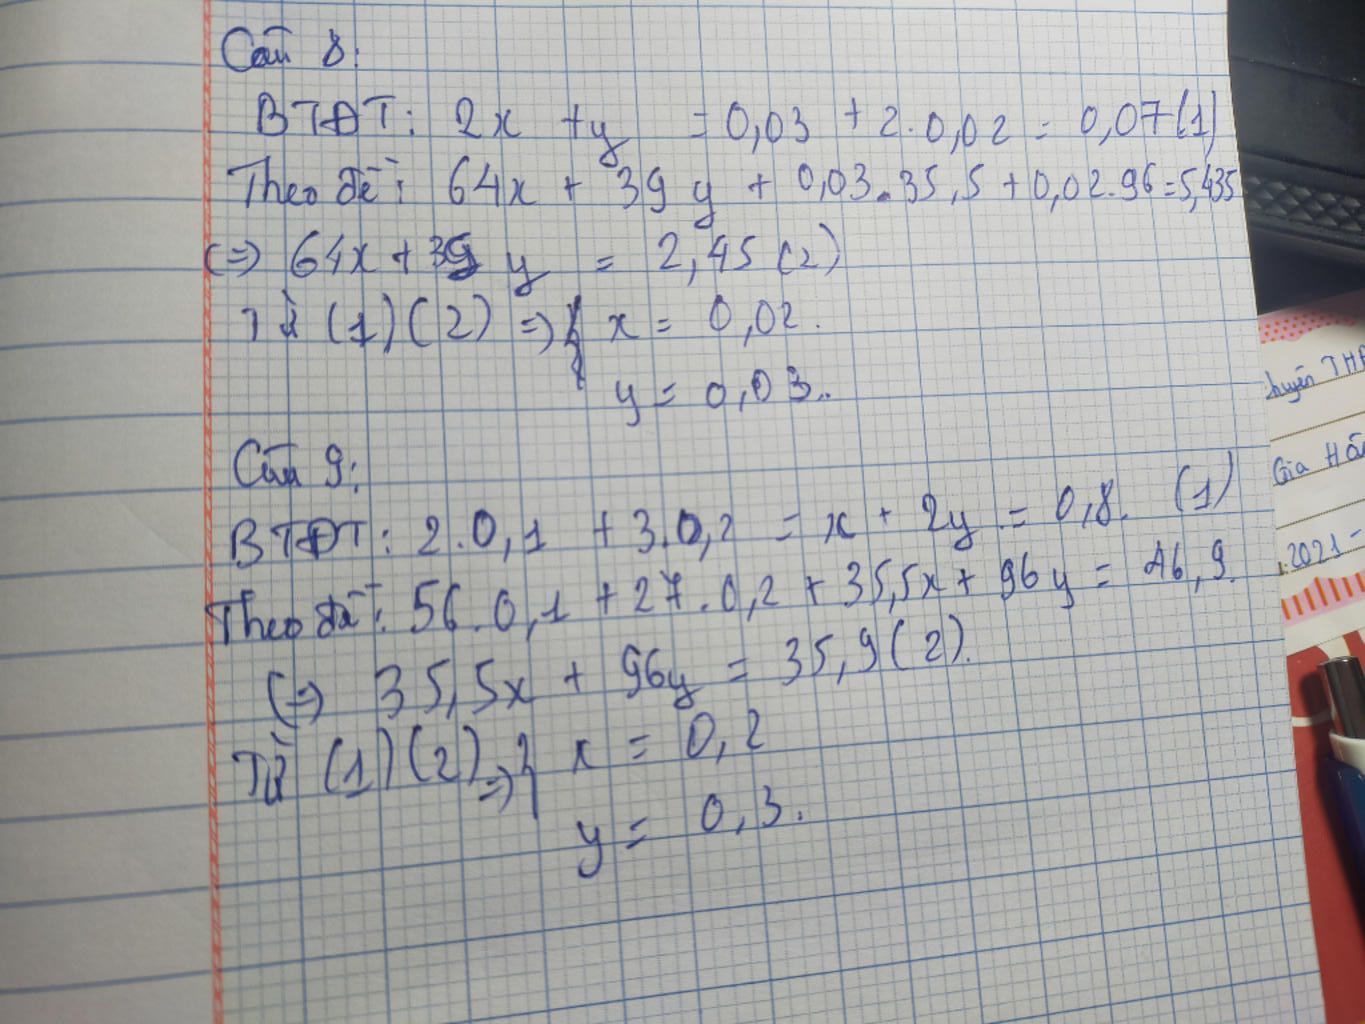 Câu 8:
BTĐT: 2x + y = 0,03 + 2.0,02 = 0,07 (1)
Theo đề: 64x + 39y + 0,03.35,5 + 0,02.96 = 5,435
(=) 64x + 39y = 2,45 (2)
Từ (1)(2) => { x = 0,02.
y = 0,03.
Câu 9:
BTĐT: 2.0,1 + 3.0,2 = x + 2y = 0,8. (1)
Theo đề: 56.0,1 + 27.0,2 + 35,5x + 96y = 46,9.
(=) 35,5x + 96y = 35,9 (2).
Từ (1)(2) => { x = 0,2
y = 0,3.
chuyên
Gia
.2021-